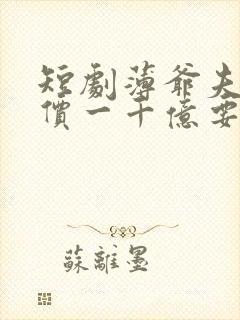 短劇薄爺夫
價一千億要
蘇離墨